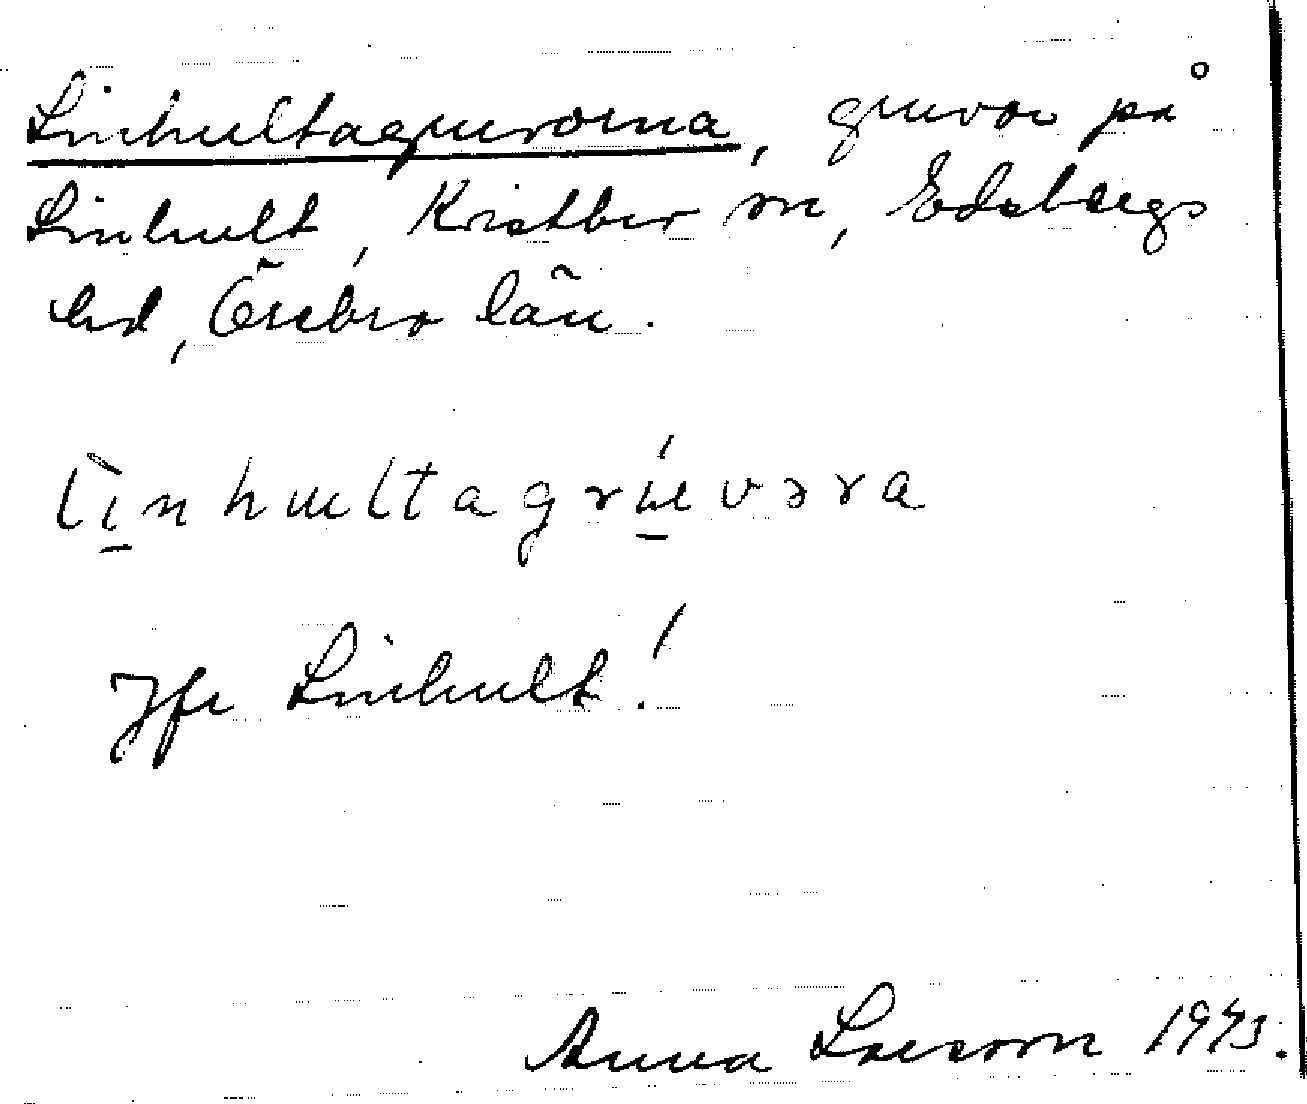 Linhultagruvorna, gruvor på
Linhult, Kvistbro sn, Edsbergs
hd, Örebro län.
li̠̇nhultagrú̠vəra
Jfr Linhult!
Anna Larsson 1943.